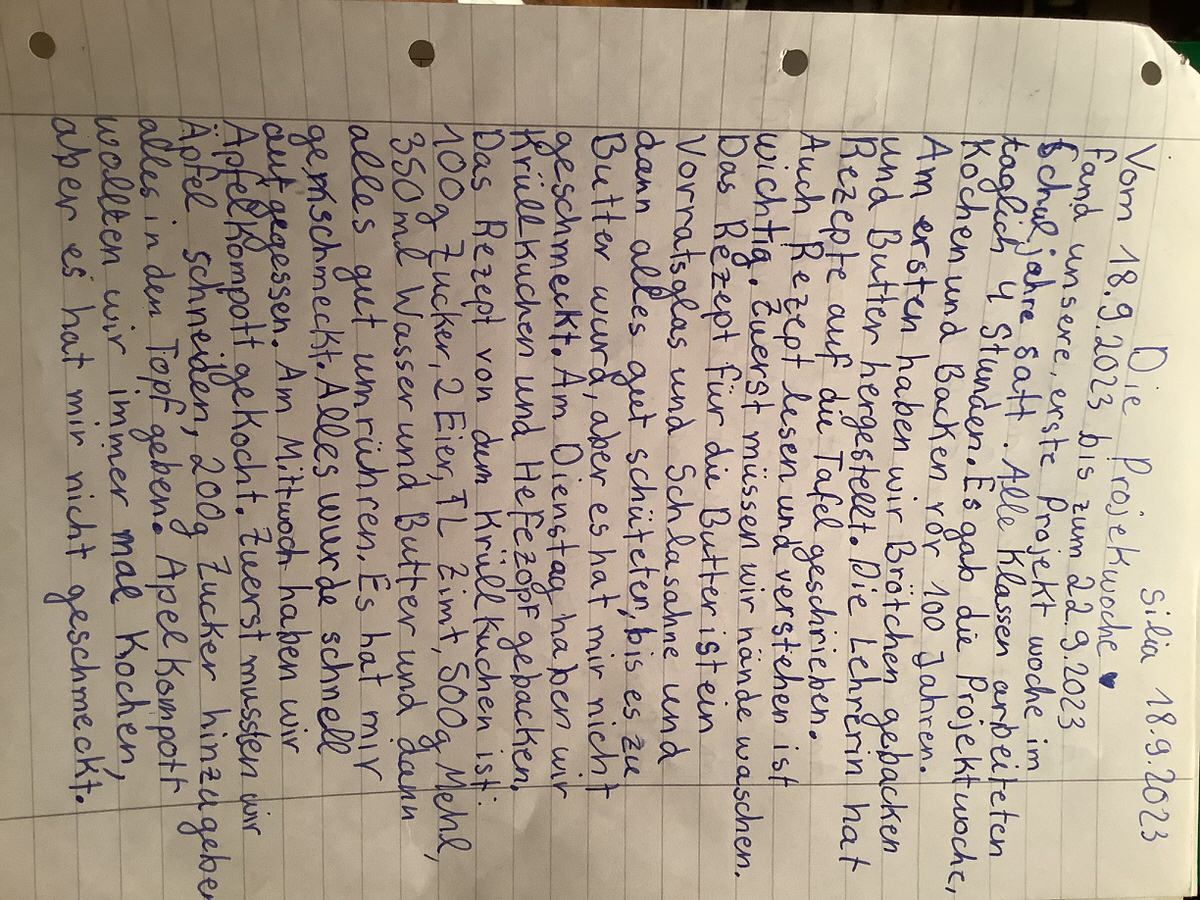 Silia 18.9.2023
Die Projekwoche ♥
Vom 18.9.2023 bis zum 22.9.2023
fand unsere, erste Projekt woche im
Schuljahre satt. Alle Klassen arbeiteten
täglich 4 Stunden. Es gab die Projektwoche,
Kochen und Backen vor 100 Jahren.
Am ersten haben wir Brötchen gebacken
und Butter hergestellt. Die Lehrerin hat
Rezepte auf die Tafel geschrieben.
Auch Rezept lesen und verstehen ist
wichtig. Zuerst müssen wir hände waschen.
Das Rezept für die Butter ist ein
Vorratsglas und Schlasahne und
dann alles gut schüteten, bis es zu
Butter wurd, aber es hat mir nicht
geschmeckt. Am Dienstag haben wir
Krüllkuchen und Hefezopf gebacken.
Das Rezept von dem Krüllkuchen ist:
100g Zucker, 2 Eier, TL Zimt, 500g Mehl,
350ml Wasser und Butter und dann
alles gut umrühren. Es hat mir
gemschmeckt. Alles wurde schnell
aufgegessen. Am Mittwoch haben wir
Apfelkompott gekocht. Zuerst mussten wir
Äpfel schneiden, 200g Zucker hinzugeben
alles in den Topf geben. Apelkompott
wollten wir immer mal Kochen,
aber es hat mir nicht geschmeckt.